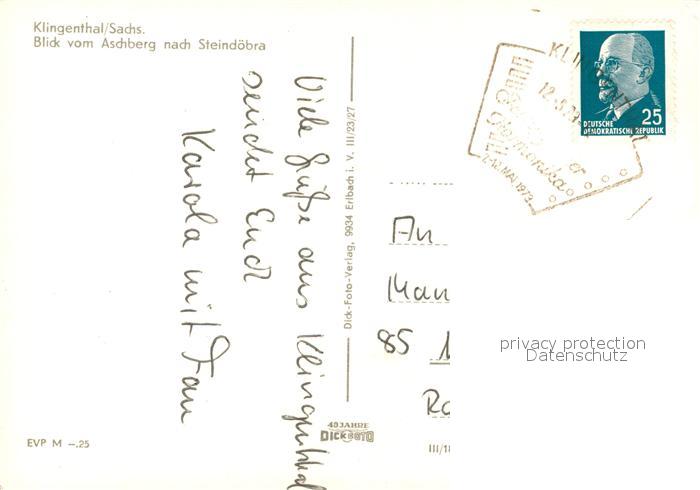 Klingenthal/Sachs.
Blick vom Aschberg nach Steindöbra
Viele Grüße aus Klingenthal
sendet Euch
Karola mit Fam
EVP M –.25
Dick-Foto-Verlag, 9934 Erlbach i. V. III/23/27
40 JAHRE
DICK FOTO
An
85
III/18
KLINGENTHAL
12.-5.73
7.-12. MAI 1973
25
DEUTSCHE
DEMOKRATISCHE REPUBLIK
privacy protection
Datenschutz